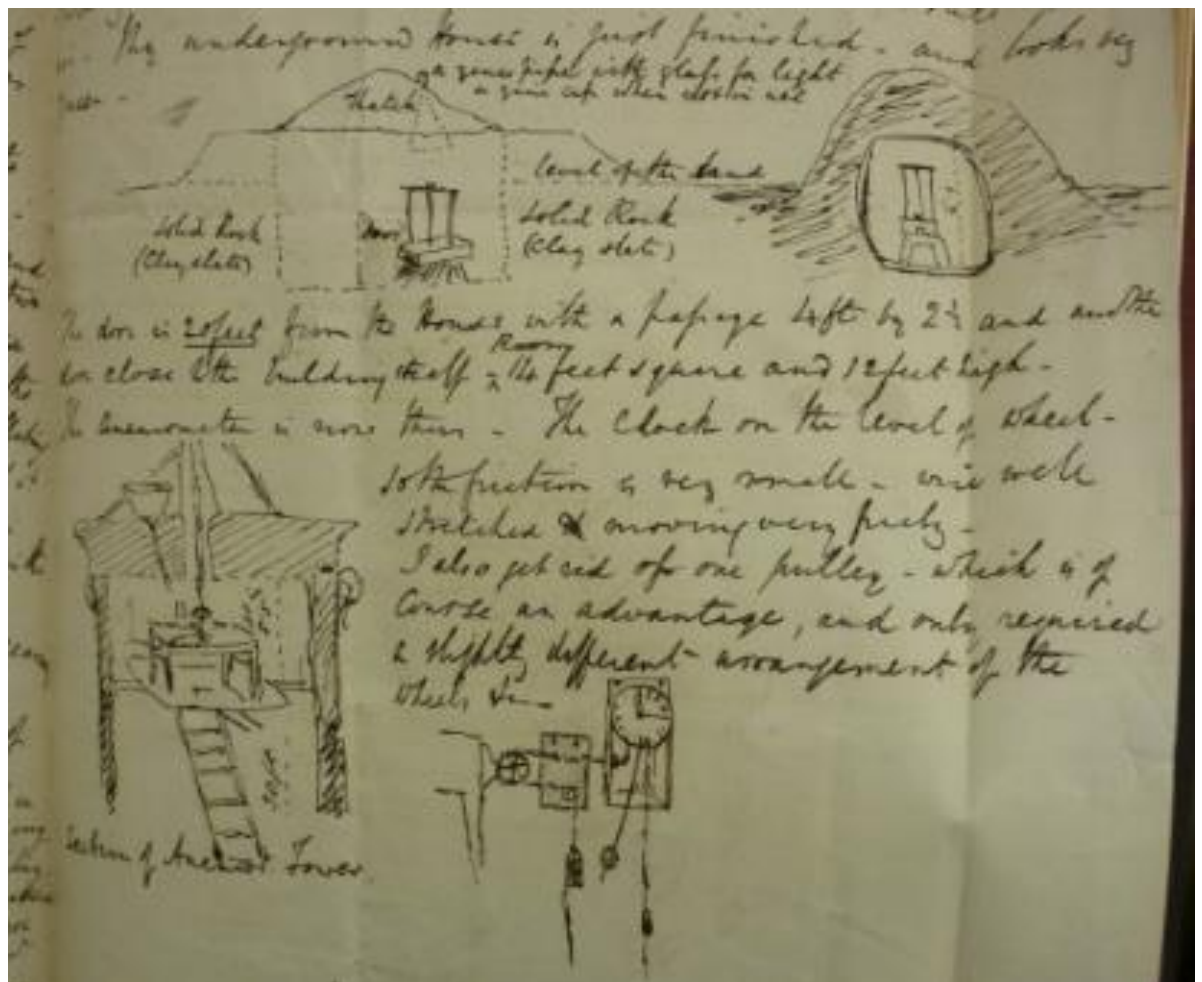 My underground House is just finished - and looks very
a zinc pipe with glass for light
a zinc cap when not in use
Thatch
level of the land
Solid Rock
(Clay slate)
Door
Solid Rock
(Clay slate)
The door is 20 feet from the House, with a passage 4ft by 2½ and another
close to the building itself - Room 14 feet square and 12 feet high -
The anemometer is now there - The Clock on the level of wheel -
so the friction is very small - wire well
stretched & moving very freely -
I also get rid of one pulley - which is of
course an advantage, and only required
a slightly different arrangement of the
wheels &c -
20ft
Section of Anemr Tower